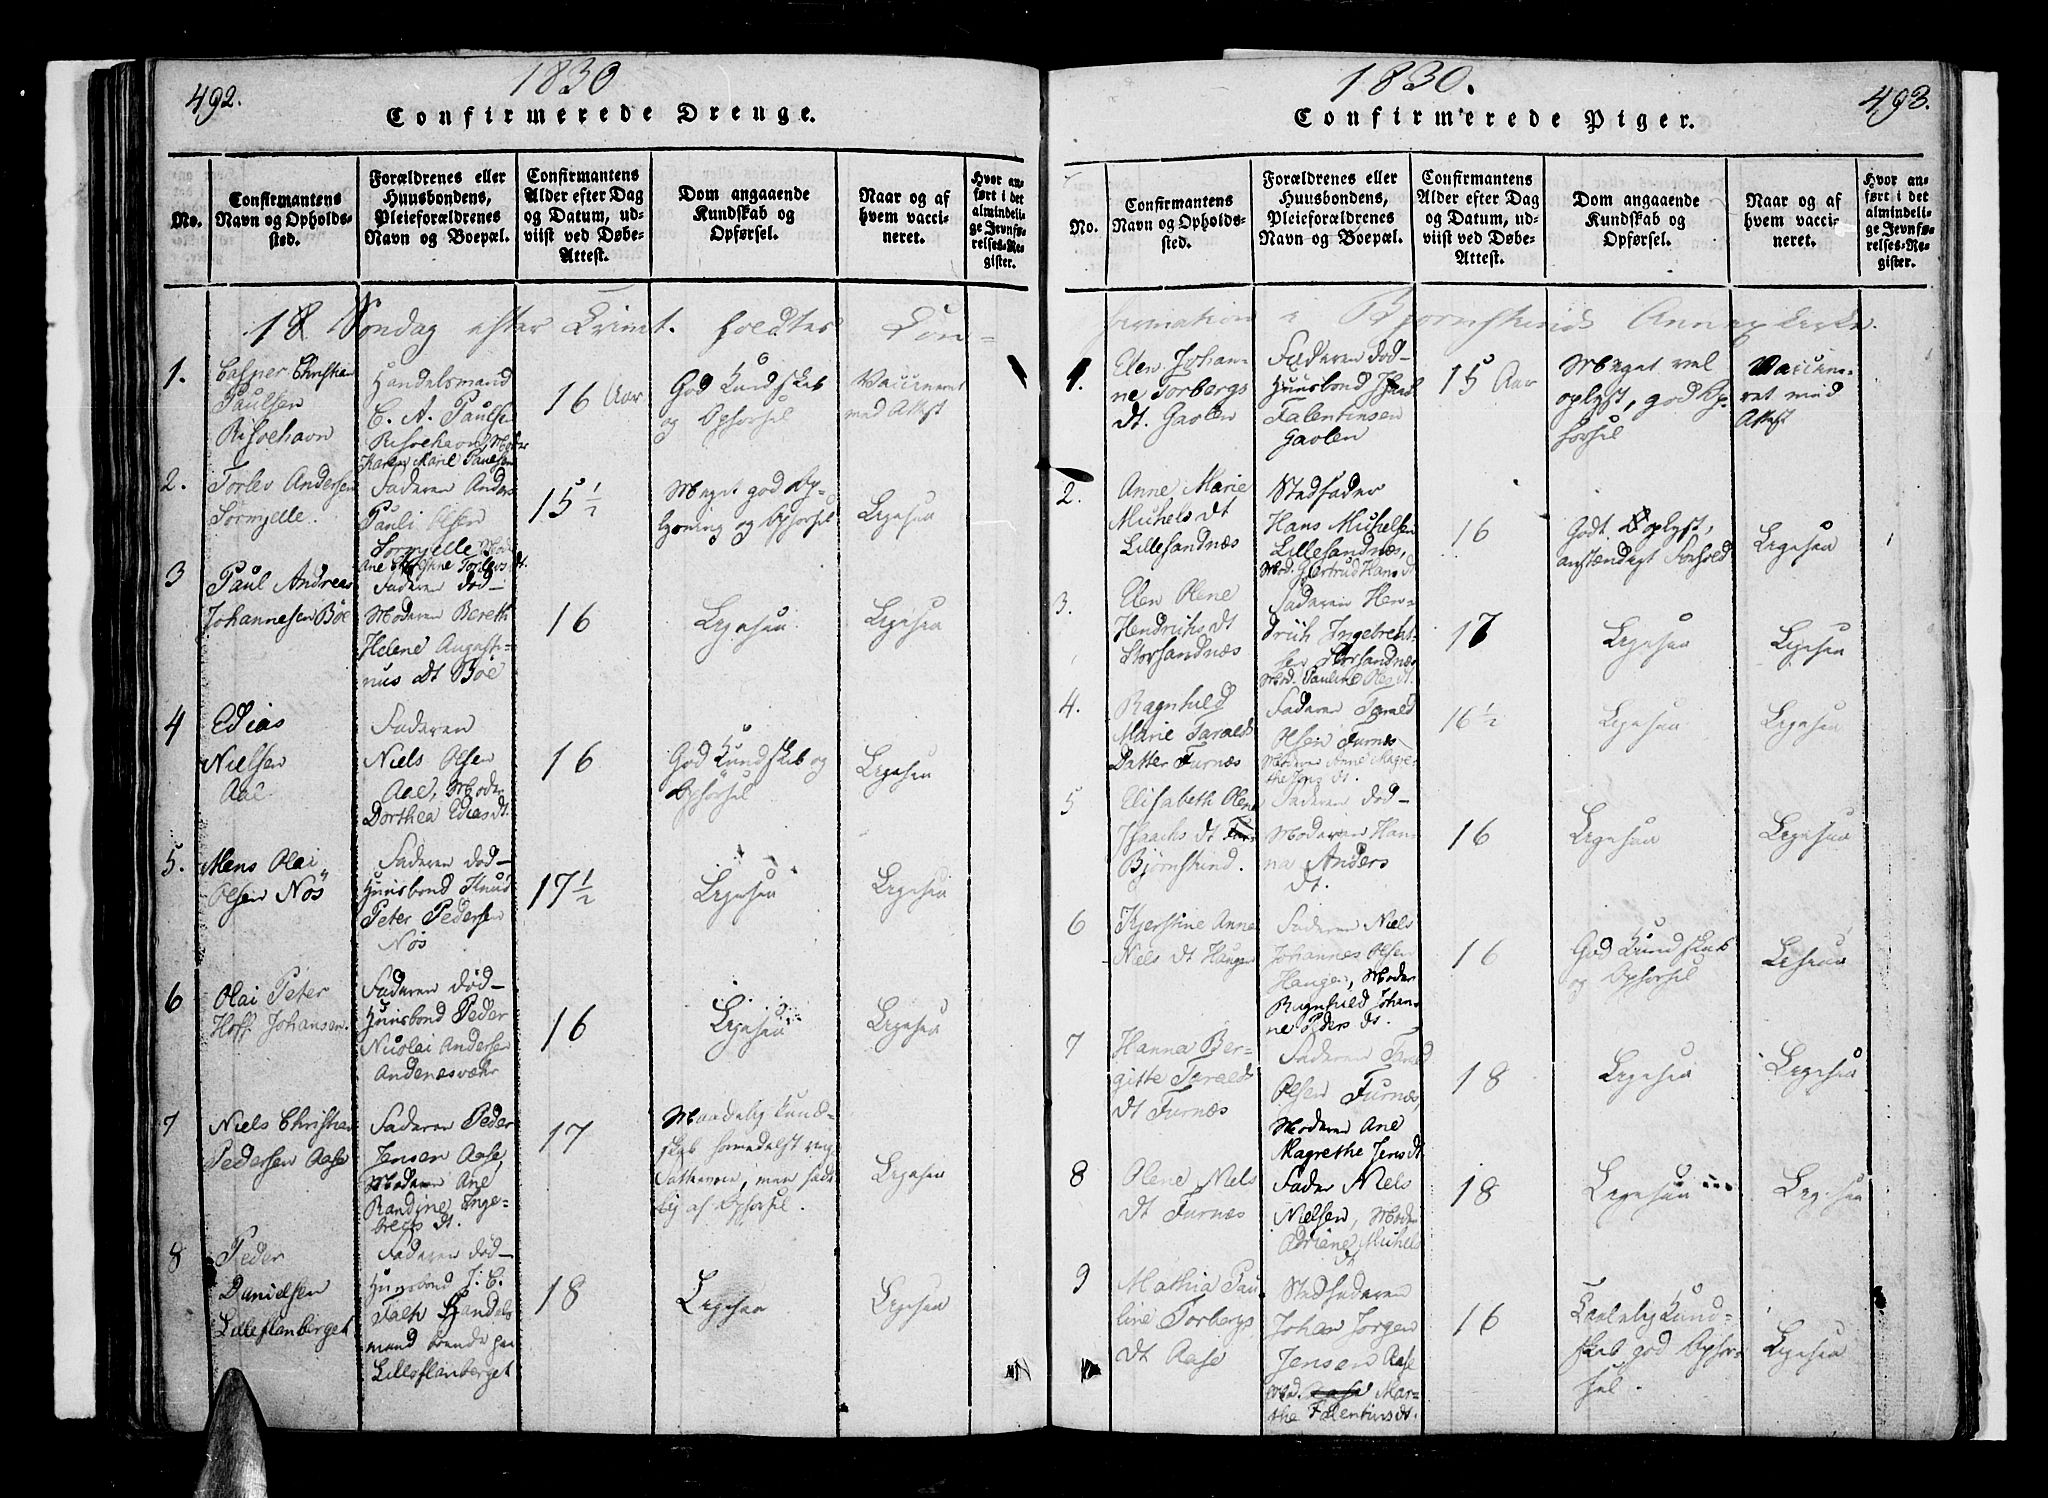 492.
1830
Confirmerede Drenge.
No.
Confirmantens
Navn og Opholds-
sted.
Forældrenes eller
Huusbondens,
Pleieforældrenes
Navn og Boepæl.
Confirmantens
Alder efter Dag
og Datum, ud-
viist ved Døbe-
Attest.
Dom angaaende
Kundskab og
Opførsel.
Naar og af
hvem vacci-
neret.
Hvor an-
ført i det
almindeli-
ge Jevnfø-
relses-Re-
gister.
18 Søndag efter Trinit. holdtes Con-
1.
Casper Christian
Paulsen
Risoehavn
Handelsmand
C. A. Paulsen
Risoehavn, Moder
Karen Marie Paulsen
16 Aar
God Kundskab
og Opførsel
Vaccineret
med Attest
2.
Torlev Andersen
Sormjelle.
Faderen Anders
Pauli Olsen
Sormjelle Mod.
Ane Torlevs dt.
15 1/2
Meget god Op-
lysning og Opførsel
Ligesaa
3
Paul Andreas
Johannesen Böe
Faderen död-
Moderen Bereth
Helene Augusti-
nus dt Böe
16
Ligesaa
Ligesaa
4
Edias
Nielsen
Aae
Faderen
Niels Olsen
Aae, Moder
Dorthea Edias dt.
16
God Kundskab og
Opførsel
Ligesaa
5.
Mens Olai
Olsen Nös
Faderen död-
Huusbond Knud
Peter Pedersen
Nös
17 1/2
Ligesaa
Ligesaa
6
Olai Peter
Hoff Johansen.
Faderen död-
Huusbond Peder
Nicolai Andersen
Andenæsvær
16
Ligesaa
Ligesaa
7
Niels Christian
Pedersen Aase
Faderen Peder
Jensen Aase
Moderen Ane
Randine Inge-
bregs dt.
17
Maadelig Kund-
skab formedelst
men sæde-
lig af Opførsel.
Ligesaa
8
Peder
Danielsen
Lilleflanberget
Faderen död-
Huusbond J. C.
Falk Handels
mand boende paa
Lilleflanberget
18
Ligesaa
Ligesaa
1830.
493.
Confirmerede Piger.
No.
Confirmantens
Navn og Opholds-
sted.
Forældrenes eller
Huusbondens,
Pleieforældrenes
Navn og Boepæl.
Confirmantens
Alder efter Dag
og Datum, ud-
viist ved Døbe-
Attest.
Dom angaaende
Kundskab og
Opførsel.
Naar og af
hvem vacci-
neret.
Hvor an-
ført i det
almindeli-
ge Jevnfø-
relses-Re-
gister.
firmation i Bjørnskinds Annex Kirke.
1.
Elen Johan-
ne Torbergs
dt. Gavlen
Faderen död-
Huusbond
Falentinsen
Gavlen
15 Aar
Meget vel
oplyst, god Op-
forsel
Vaccine-
ret med
Attest
2.
Anne Marie
Michels dt
Lillesandnæs
Stedfader
Hans Michelsen
Lillesandnæs,
Mod. Gjertrud Hans dt
16
Godt oplyst,
anstændigt Forhold
Ligesaa
3.
Elen Olene
Hendrichs dt
Storsandnæs
Faderen Hen-
drich Ingebrecht-
sen Storsandnæs
Mod. Pauline Oles dt.
17
Ligesaa
Ligesaa
4.
Ragnhild
Marie Taralds
Datter Furnæs
Faderen Tarald
Olsen Furnæs
Moderen Anne Magre-
the Jens dt.
16 1/2
Ligesaa
Ligesaa
5
Elisabeth Olene
Isachs dt
Björnskind.
Faderen död-
Moderen Han-
na Anders
dt.
16
Ligesaa
Ligesaa
6
Kjerstine Anne
Niels dt Haugen
Faderen Niels
Johannes Olsen
Haugen, Moder
Ragnhild Johan-
ne Peders dt.
16
God Kundskab
og Opførsel
Ligesaa
7
Hanna Ber-
gitte Taralds
dt Furnæs
Faderen Tarald
Olsen Furnæs,
Moderen Ane
Magrethe Jens dt.
18
Ligesaa
Ligesaa
8
Olene Niels
dt Furnæs
Fader Niels
Nielsen, Moder
Adriane Michels
dt
18
Ligesaa
Ligesaa
9
Mathia Pau
line Torbergs
dt Aase
Stedfaderen
Johan Jorgen
Jensen Aase
Mod. Mar-
the Falentins dt.
16
Taalelig Kund-
skab god Opfør-
sel.
Ligesaa